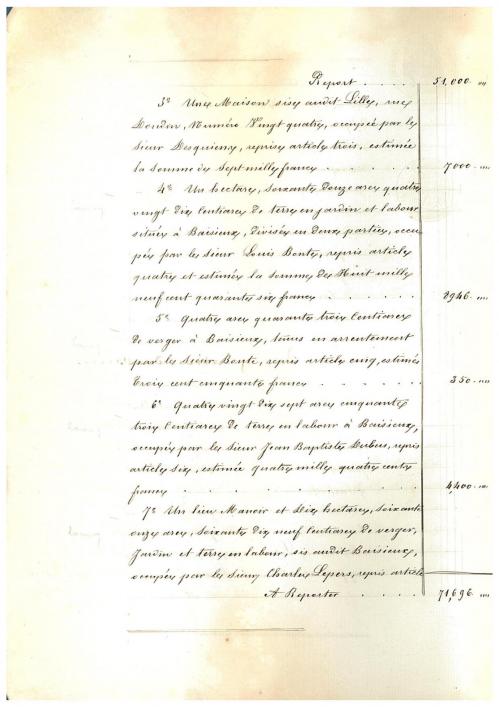 Report . . . . 51,000. "
3° Une Maison sise audit Lille, rue
Dondon, Numéro Vingt quatre, occupée par le
Sieur Desquiens, reprise article trois, estimée
la somme de Sept mille francs . . . . . . 7000. "
4° Un hectare, soixante douze ares quatre
vingt dix Centiares de terre en jardin et labour
située à Baisieux, divisée en deux parties, occu
pée par le sieur Louis Bonte, repris article
quatre et estimée la somme de Huit mille
neuf cent quarante six francs . . . . . . 8946. "
5° Quatre ares quarante trois Centiares
de verger à Baisieux, tenus en arrentement
par le Sieur Bonte, repris article cinq, estimés
Trois cent cinquante francs . . . . . . 350. "
6° Quatre vingt dix sept ares cinquante
trois Centiares de terre en labour à Baisieux,
occupée par le Sieur Jean Baptiste Dubus, repris
article six, estimée quatre mille quatre cents
francs . . . . . . . . . . 4,400. "
7° Un lieu Manoir et Dix hectares, soixante
onze ares, soixante dix neuf Centiares de verger,
Jardin et terre en labour, sis audit Baisieux,
occupés par le Sieur Charles Lepers, repris article
A Reporter . . . . 71,696. "